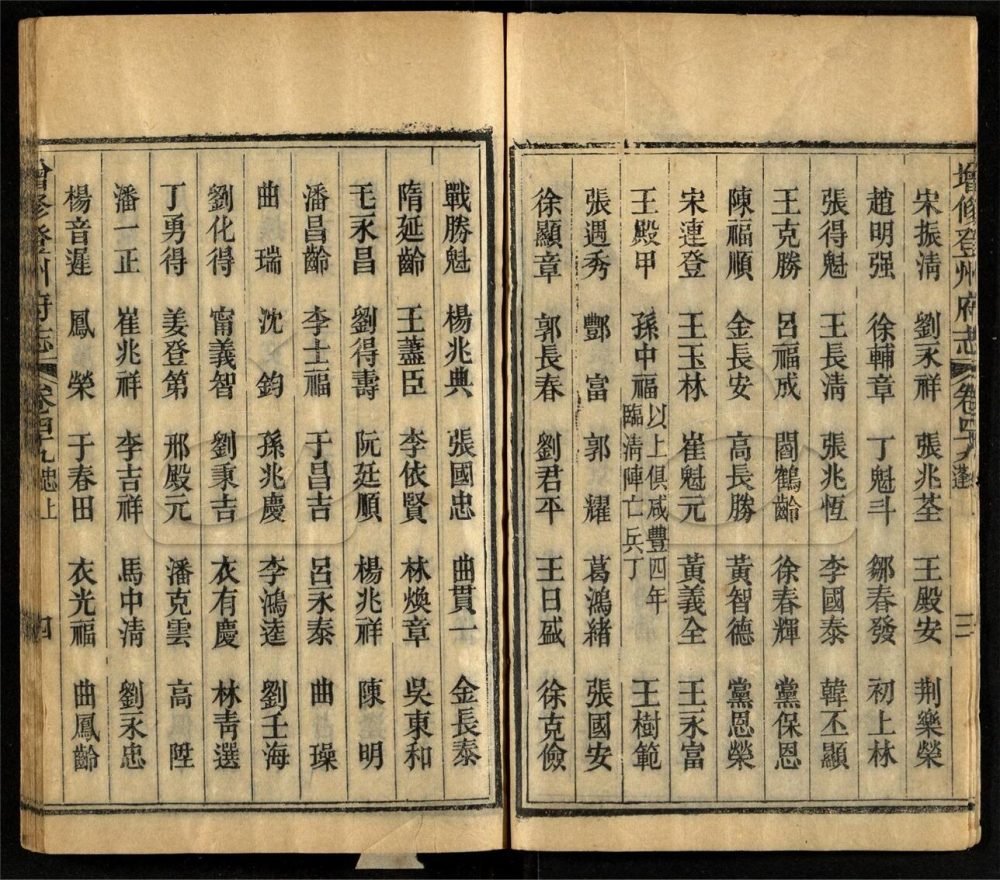 增修登州府志 卷四十九 三
宋振清 劉永祥 張兆荃 王殿安 荆樂榮
趙明强 徐輔章 丁魁斗 鄒春發 初上林
張得魁 王長清 張兆恆 李國泰 韓丕顯
王克勝 呂福成 閻鶴齡 徐春輝 黨保恩
陳福順 金長安 高長勝 黃智德 黨恩榮
宋連登 王玉林 崔魁元 黃義全 王永富
王殿甲 孫中福 以上俱咸豐四年臨淸陣亡兵丁 王樹範
張遇秀 酆富 郭耀 葛鴻緒 張國安
徐顯章 郭長春 劉君平 王日盛 徐克儉
戰勝魁 楊兆典 張國忠 曲貫一 金長泰
隋延齡 王藎臣 李依賢 林煥章 吳東和
毛永昌 劉得壽 阮廷順 楊兆祥 陳明
潘昌齡 李士福 于昌吉 呂永泰 曲璪
曲瑞 沈鈞 孫兆慶 李鴻逵 劉壬海
劉化得 甯義智 劉秉吉 衣有慶 林靑選
丁勇得 姜登第 邢殿元 潘克雲 高陞
潘一正 崔兆祥 李吉祥 馬中清 劉永忠
楊音遲 鳳榮 于春田 衣光福 曲鳳齡
增修登州府志 卷四十九 忠上 四